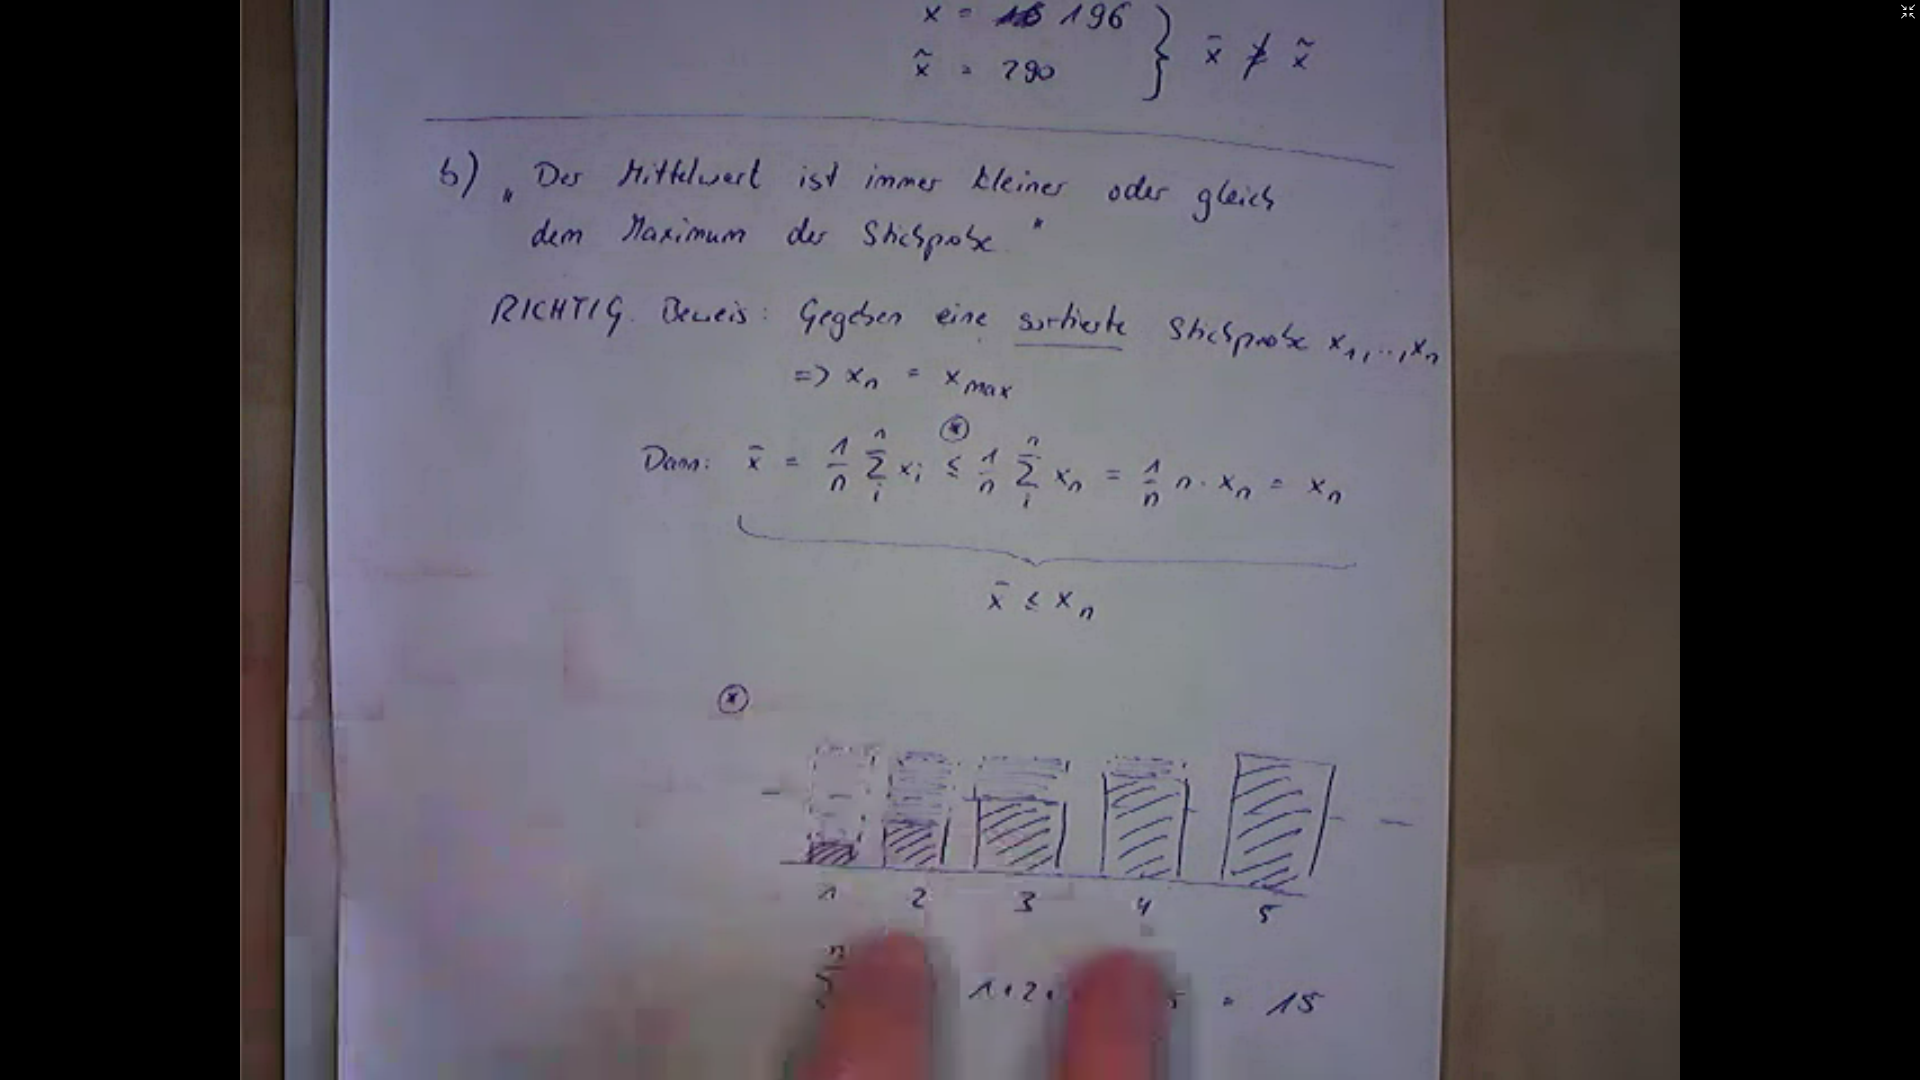 x̄ = 196
x̃ = 290 } x̄ ≠ x̃
b) „Der Mittelwert ist immer kleiner oder gleich
dem Maximum der Stichprobe."
RICHTIG. Beweis: Gegeben eine sortierte Stichprobe x₁,..,xₙ
=> xₙ = x_max
⊛
Dann: x̄ = 1/n Σᵢⁿ xᵢ ≤ 1/n Σᵢⁿ xₙ = 1/n n · xₙ = xₙ
x̄ ≤ xₙ
⊛
1 2 3 4 5
1+2+ 5 = 15